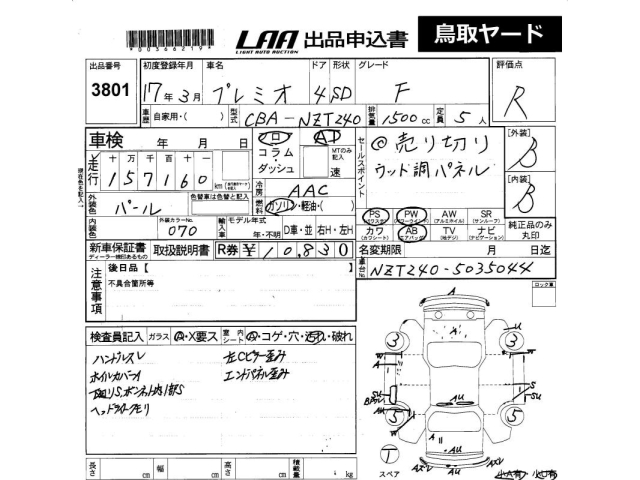 *00366219*
LAA 出品申込書
LIGHT AUTO AUCTION
鳥取ヤード
出品番号 初度登録年月 車名 ドア 形状 グレード 評価点
3801 17年3月 プレミオ 4 SD F R
車歴 自家用・( ) 型式 CBA-NZT240 排気量 1500cc 定員 5人
車検 年 月 日
フロ AT
コラム・ダッシュ
MTのみ記入
速
セールスポイント
@売り切り
ウッド調パネル
[外装] B
[内装] B
走行 十万千百十
157160 km
現在色を記入
外装色 パール
色替車は色替と記入
冷房 AAC
燃料 ガソリン・軽油・( )
PS PW AW SR
(パワステ) (パワーウインド) (アルミホイル) (サンルーフ)
カワ AB TV ナビ
(カワシート) (エアバック) (地デジ) (ナビゲーション)
純正品のみ丸印
内装色
外装カラーNo.
070
輸入車 モデル年式 年・不明 D車・並 右H・左H
新車保証書 取扱説明書 R券 ¥10,830
ディーラー捺印あるもの
名変期限 月 日迄
車台No. NZT240-5035044
注意事項
後日品【 】
不具合箇所等
ロック車
検査員記入 ガラス A・X要ス 室内シート A・コゲ・穴・汚れ・破れ
ハンドルスレ 左Cピラー歪み
ホイルカバーA エンドパネル歪み
下廻りS、ボンネット内1部S
ヘッドライトクモリ
A
U
3 3
A
W
A
SU
S
SU
AU AU
AU
5 5
W
A
AU
AU
T
スペア
AXW AXW
長さ cm 幅 cm 高さ cm 積載量 kg